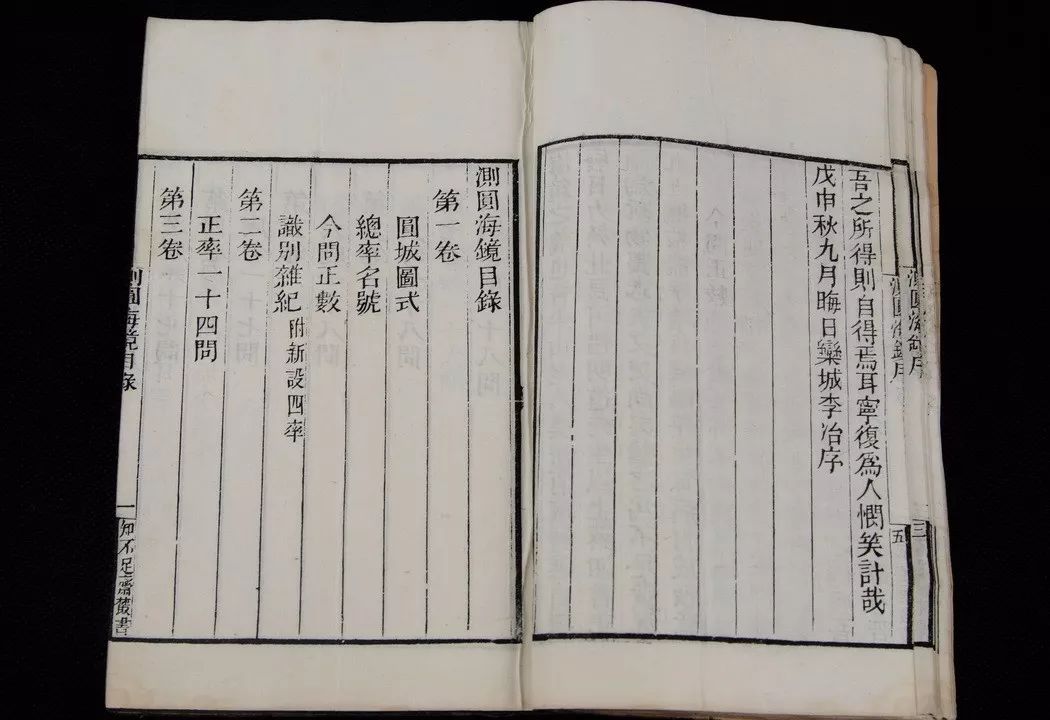 吾之所得則自得焉耳寧復爲人憫笑計哉
戊申秋九月晦日欒城李冶序
測圓海鏡序
五
測圓海鏡序
三
測圓海鏡目錄
第一卷
圓城圖式
總率名號
今問正數
識別雜紀附新設四率
第二卷
正率一十四問
第三卷
測圓海鏡目錄
一
知不足齋叢書